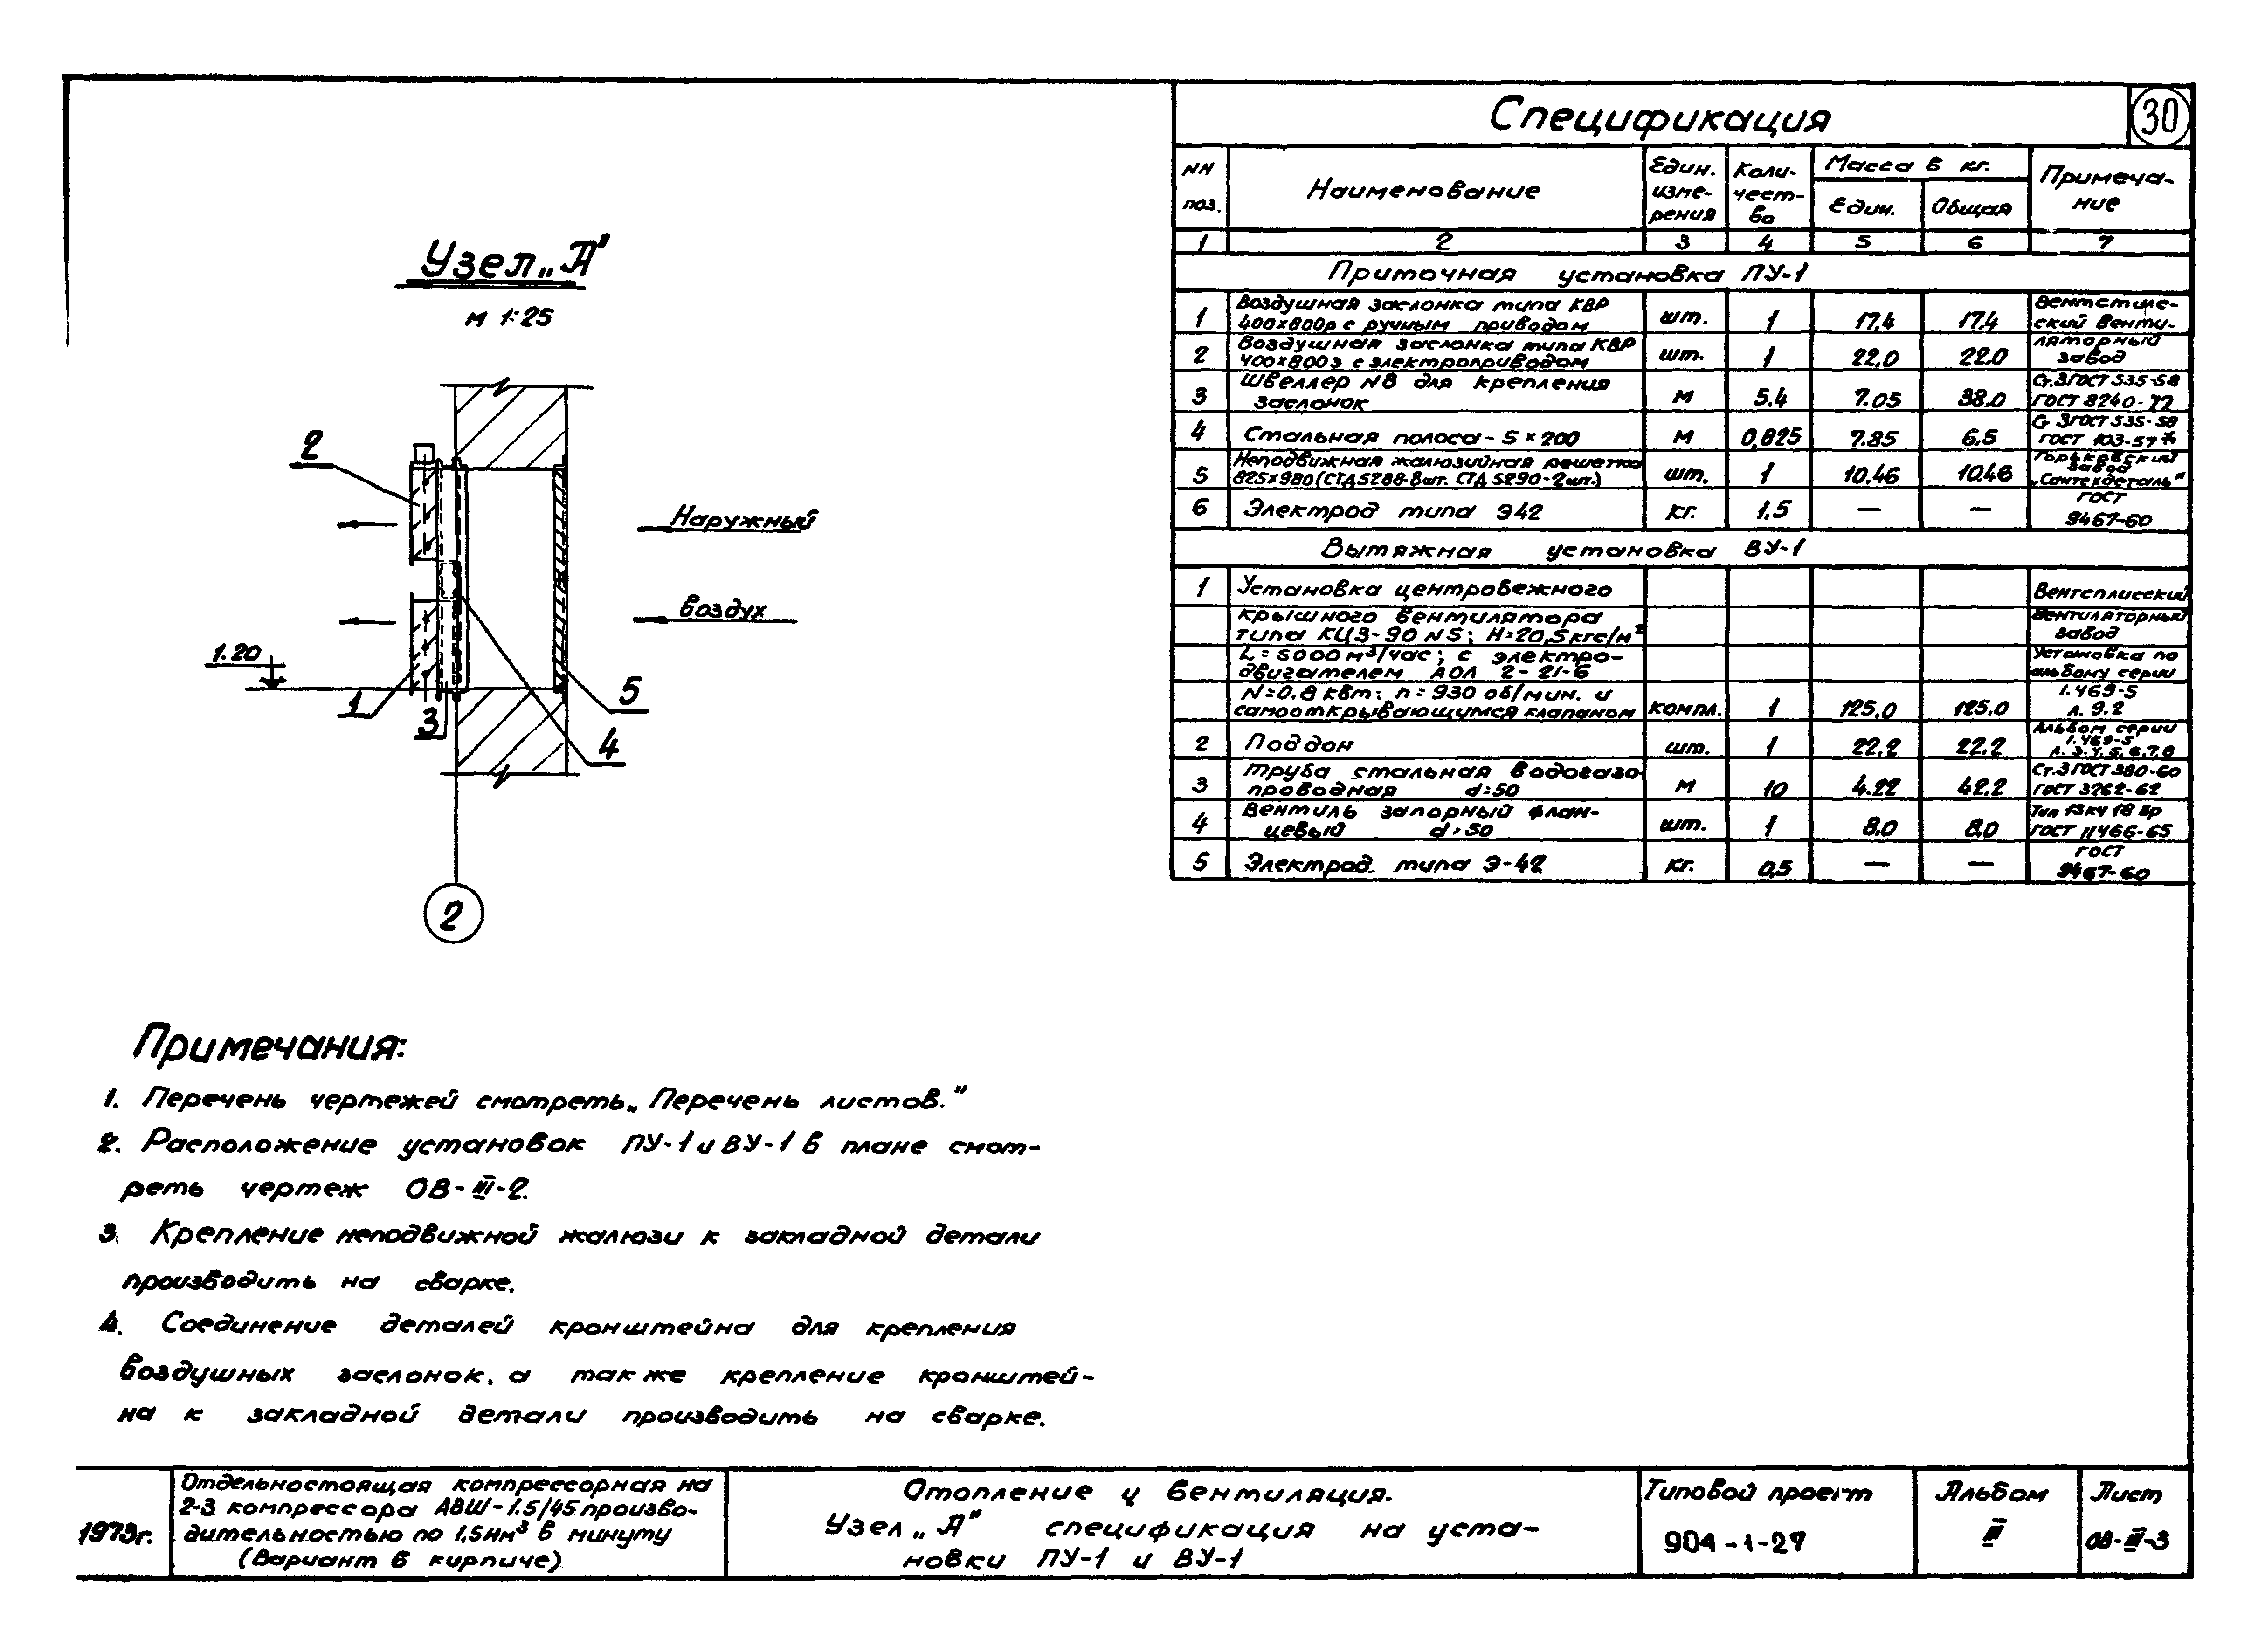 Узел „А"
м 1:25
2
Наружный
Воздух
1.20
1
3
5
4
2
Спецификация
30
NN поз.
Наименование
Един. изме- рения
Коли- чест- во
Масса в кг.
Един.
Общая
Примеча- ние
1 2 3 4 5 6 7
Приточная установка ПУ-1
1 Воздушная заслонка типа КВР 400х800р с ручным приводом шт. 1 17,4 17,4
2 Воздушная заслонка типа КВР 400х800э с электроприводом шт. 1 22,0 22,0 ляторный завод
3 Швеллер N8 для крепления заслонок м 5,4 7.05 38,0 Ст.3ГОСТ 535-58 ГОСТ 8240-72
4 Стальная полоса - 5 х 200 м 0,825 7.85 6,5 Ст 3ГОСТ 535-58 ГОСТ 103-57*
5 Неподвижная жалюзийная решетка 825х980 (СТД 5288-8шт. СТД 5290-2шт.) шт. 1 10,46 10,46 Горьковский завод „Сантехдеталь"
6 Электрод типа Э42 кг. 1,5 — — ГОСТ 9467-60
Вытяжная установка ВУ-1
1 Установка центробежного
крышного вентилятора Вентиляторный
типа КЦ3-90 N5; Н=20,5кгс/м² завод
L=5000 м³/час; с электро- Установка по
двигателем АОЛ 2-21-6 альбому серии
N=0,8 квт; n=930 об/мин. и 1.469-5
самооткрывающимся клапаном компл. 1 125,0 125,0 Л. 9.2
2 Поддон шт. 1 22,2 22,2 Альбом серии 1.469-5 Л. 3.4.5.6.7.8
3 Труба стальная водогазо проводная d=50 м 10 4.22 42,2 Ст.3 ГОСТ 380-60 ГОСТ 3262-62
4 Вентиль запорный флан- цевый d=50 шт. 1 8,0 8,0 Тип 15кч 18 бр ГОСТ 11466-65
5 Электрод типа Э-42 кг. 0,5 — — ГОСТ 9467-60
Примечания:
1. Перечень чертежей смотреть „Перечень листов."
2. Расположение установок ПУ-1 и ВУ-1 в плане смот-
реть чертеж ОВ-III-2.
3. Крепление неподвижной жалюзи к закладной детали
производить на сварке.
4. Соединение деталей кронштейна для крепления
воздушных заслонок, а также крепление кронштей-
на к закладной детали производить на сварке.
1973г.
Отдельностоящая компрессорная на
2-3 компрессора АВШ-1.5/45 произво-
дительностью по 1,5Нм³ в минуту
(Вариант в кирпиче)
Отопление и вентиляция.
Узел „А" спецификация на уста-
новки ПУ-1 и ВУ-1
Типовой проект
904-1-27
Альбом
III
Лист
ОВ-III-3